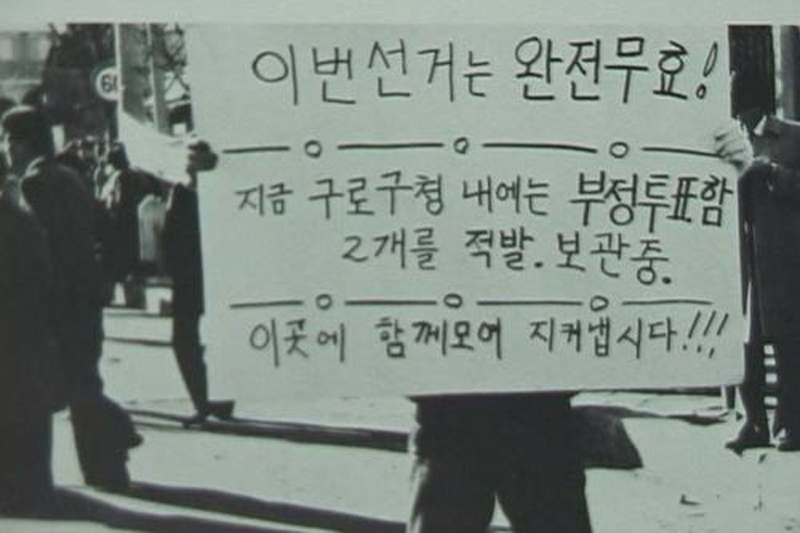 이번선거는 완전무효!
지금 구로구청 내에는 부정투표함
2개를 적발. 보관중.
이곳에 함께모여 지켜냅시다!!!